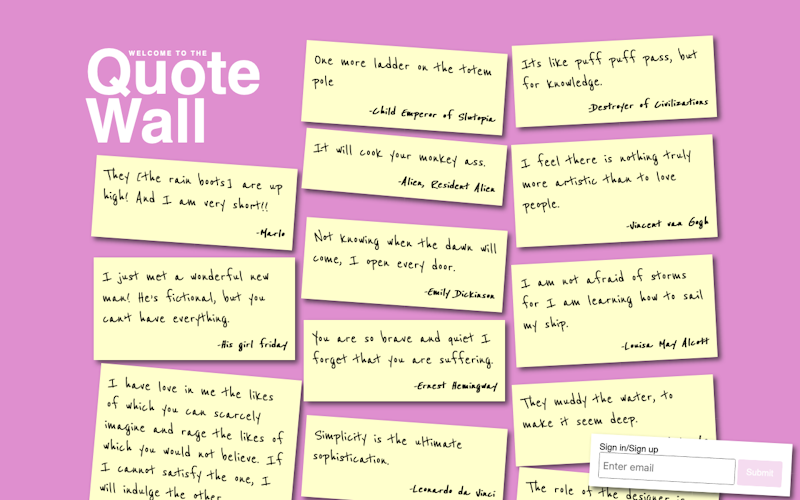 WELCOME TO THE
Quote
Wall
They [the rain boots] are up
high! And I am very short!!
-Marlo
I just met a wonderful new
man! He's fictional, but you
can't have everything.
-His girl friday
I have love in me the likes
of which you can scarcely
imagine and rage the likes of
which you would not believe. If
I cannot satisfy the one, I
will indulge the other.
One more ladder on the totem
pole
-Child Emperor of Slutopia
It will cook your monkey ass.
-Alien, Resident Alien
Not knowing when the dawn will
come, I open every door.
-Emily Dickinson
You are so brave and quiet I
forget that you are suffering.
-Ernest Hemingway
Simplicity is the ultimate
sophistication.
-Leonardo da Vinci
Its like puff puff pass, but
for knowledge.
-Destroyer of Civilizations
I feel there is nothing truly
more artistic than to love
people.
-Vincent van Gogh
I am not afraid of storms
for I am learning how to sail
my ship.
-Louisa May Alcott
They muddy the water, to
make it seem deep.
The role of the designer is
Sign in/Sign up
Enter email
Submit